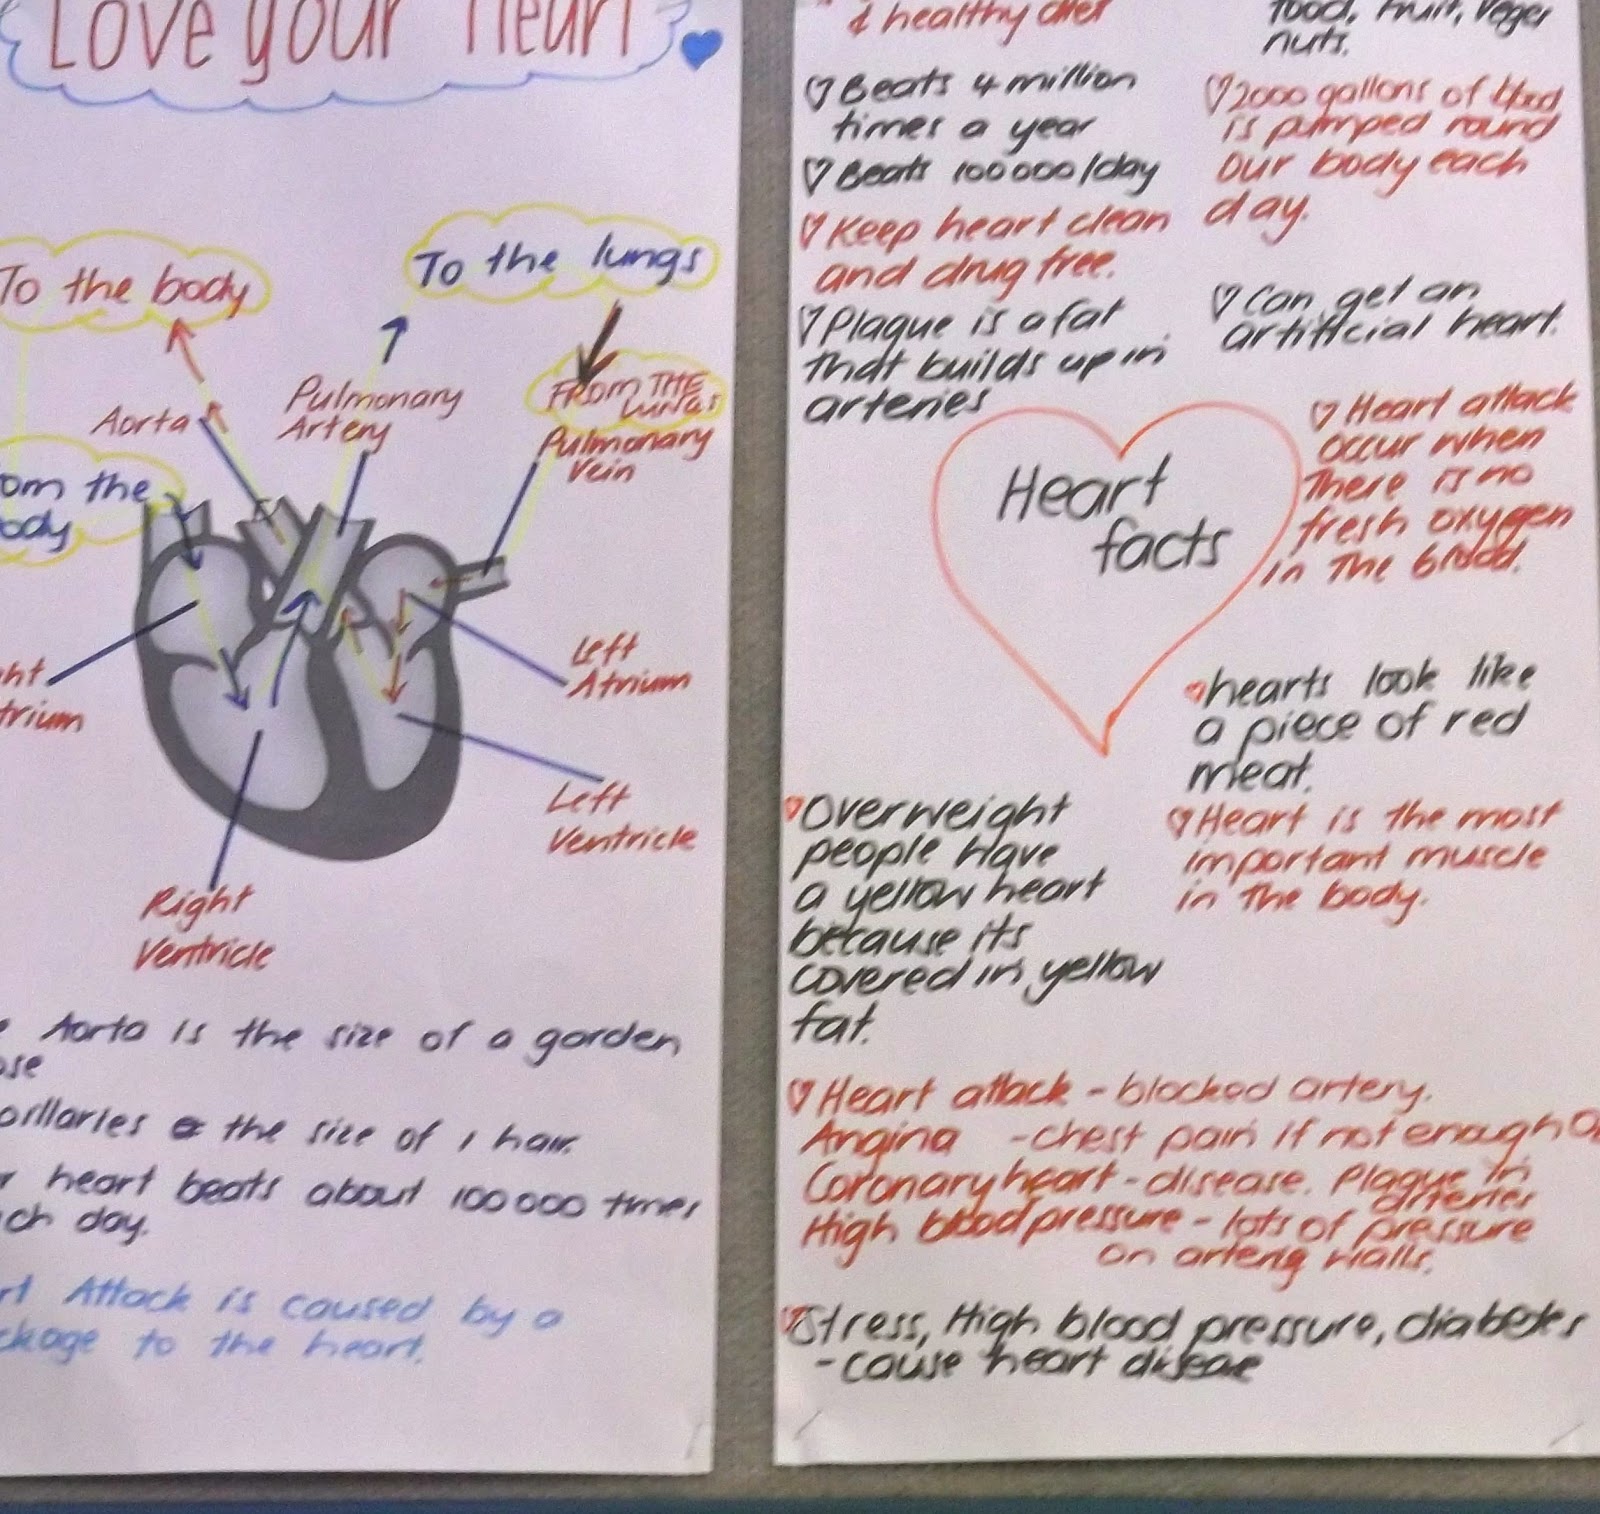 Love your Heart
To the body
To the lungs
FROM THE
LUNGS
Aorta
Pulmonary
Artery
Pulmonary
Vein
om the
ody
ht
trium
Left
Atrium
Left
Ventricle
Right
Ventricle
Aorta is the size of a garden
ose
pillaries the size of 1 hair.
r heart beats about 100 000 times
ch day.
rt Attack is caused by a
ckage to the heart.
& healthy diet
♡ Beats 4 million
times a year
♡ Beats 100 000/day
♡ Keep heart clean
and drug free.
♡ Plaque is a fat
that builds up in
arteries
food, fruit, veges
nuts.
♡ 2000 gallons of blood
is pumped round
our body each
day.
♡ Can get an
artificial heart.
♡ Heart attack
occur when
There is no
fresh oxygen
in The blood.
Heart
facts
♡ hearts look like
a piece of red
meat.
♡ Heart is the most
important muscle
in the body.
♡ Overweight
people have
a yellow heart
because its
covered in yellow
fat.
♡ Heart attack - blocked artery.
Angina - chest pain if not enough O
Coronary heart - disease. Plaque in
arteries
High blood pressure - lots of pressure
on artery walls.
♡ Stress, High blood pressure, diabetes
- cause heart disease